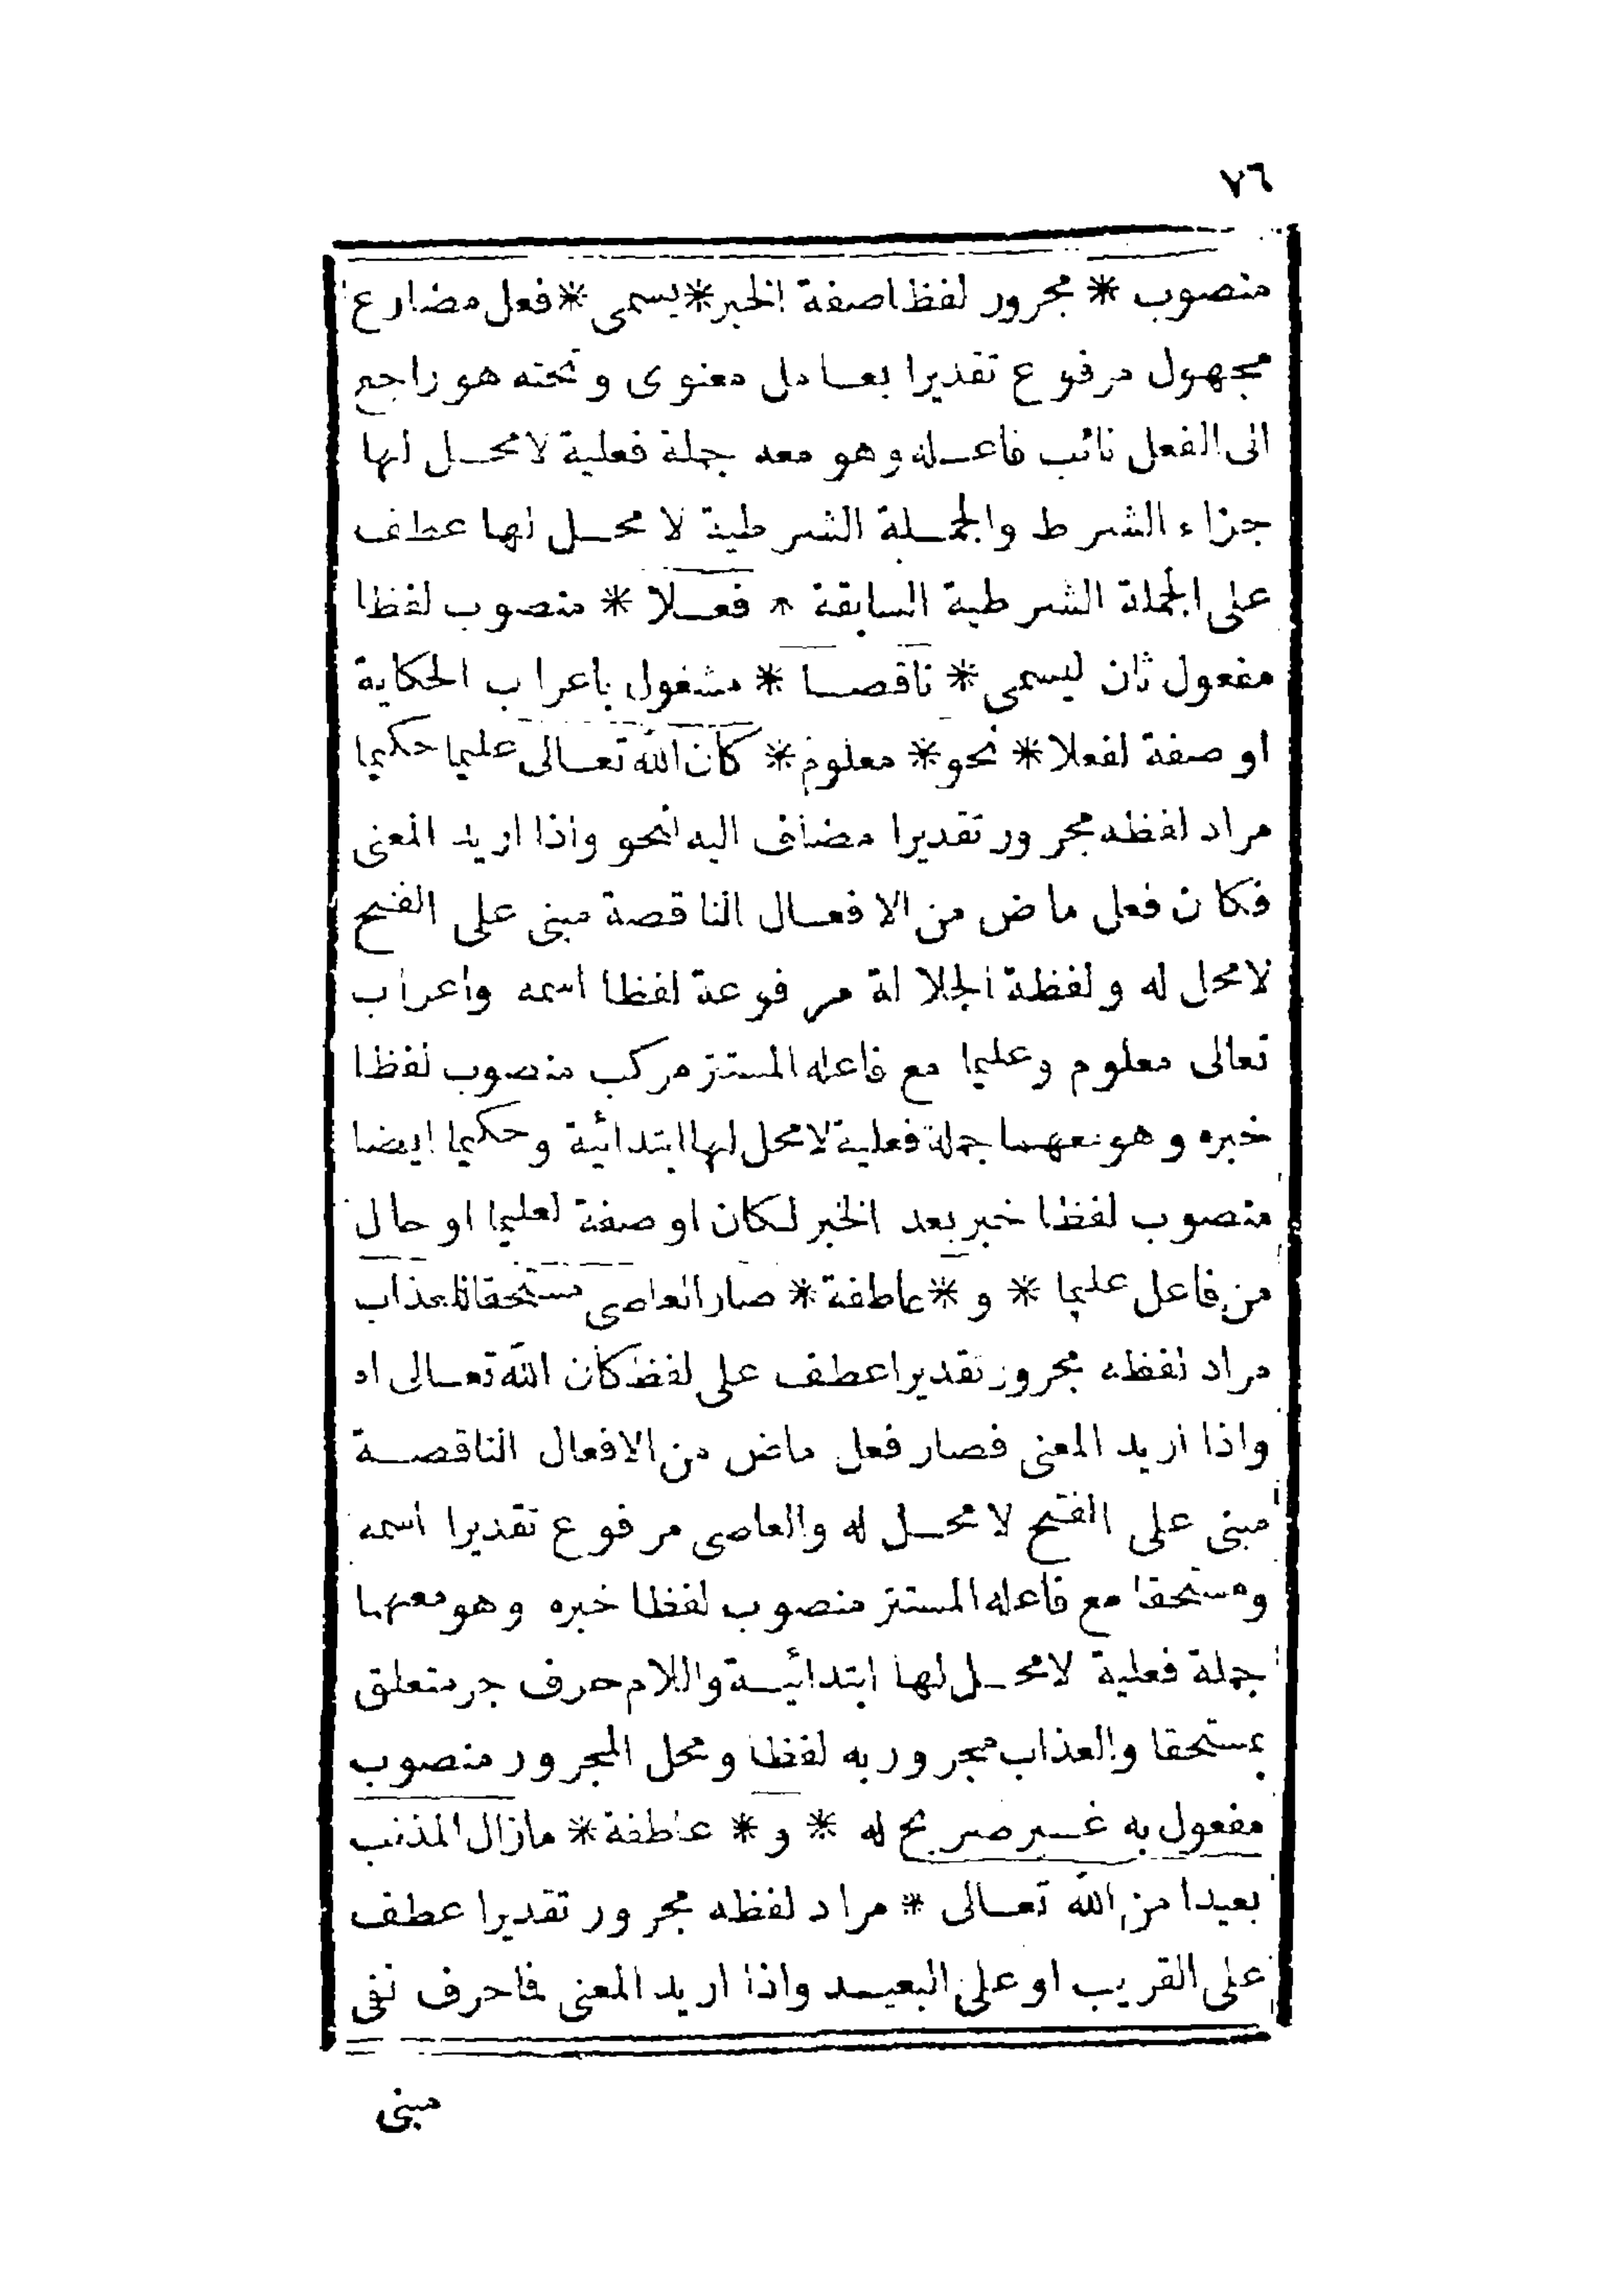 ٧٦
منصوب * مجرور لفظا صفة الخبر * يسمى * فعل مضارع
مجهول مرفوع تقديرا بعامل معنوى وتحته هو راجع
الى الفعل نائب فاعله وهو معه جملة فعلية لا محل لها
جزاء الشرط والجملة الشرطية لا محل لها عطف
على الجملة الشرطية السابقة * فعلا * منصوب لفظا
مفعول ثان ليسمى * ناقصا * مشغول باعراب الحكاية
او صفة لفعلا * نحو * معلوم * كان الله تعالى عليما حكيما
مراد لفظه مجرور تقديرا مضاف اليه لنحو واذا اريد المعنى
فكان فعل ماض من الافعال الناقصة مبنى على الفتح
لا محل له ولفظة الجلالة مرفوعة لفظا اسمه واعراب
تعالى معلوم وعليما مع فاعله المستتر مركب منصوب لفظا
خبره وهو معهما جملة فعلية لا محل لها ابتدائية وحكيما ايضا
منصوب لفظا خبر بعد الخبر لكان او صفة لعليما او حال
من فاعل عليما * و * عاطفة * صار العاصى مستحقا للعذاب
مراد لفظه مجرور تقديرا عطف على لفظ كان الله تعالى اه
واذا اريد المعنى فصار فعل ماض من الافعال الناقصة
مبنى على الفتح لا محل له والعاصى مرفوع تقديرا اسمه
ومستحقا مع فاعله المستتر منصوب لفظا خبره وهو معهما
جملة فعلية لا محل لها ابتدائية واللام حرف جر متعلق
بمستحقا والعذاب مجرور به لفظا ومحل المجرور منصوب
مفعول به غير صريح له * و * عاطفة * مازال المذنب
بعيدا من الله تعالى * مراد لفظه مجرور تقديرا عطف
على القريب او على البعيد واذا اريد المعنى فاحرف نفى
مبنى